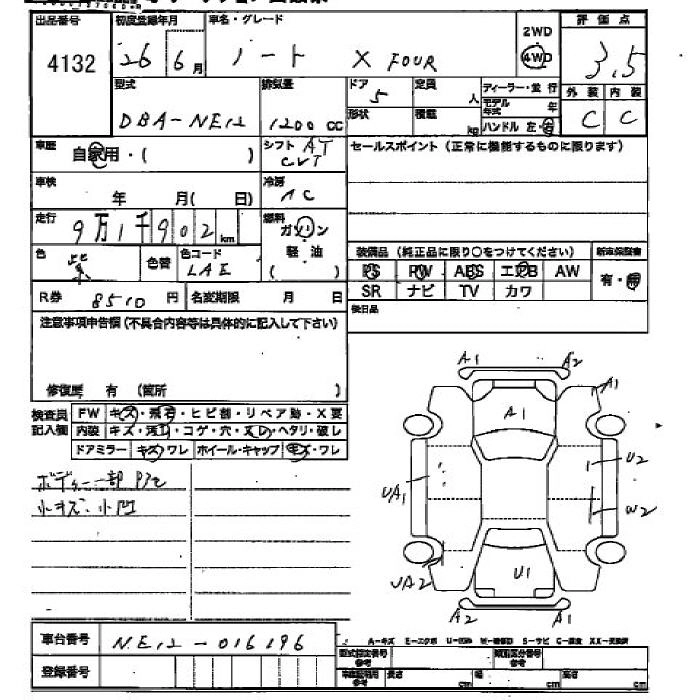 出品番号 初度登録年月 車名・グレード 2WD 評価点
4132 26 6月 ノート X FOUR 4WD 3.5
型式 排気量 ドア 定員 人 ディーラー・並行 外装 内装
DBA-NE12 1200 CC 5 形状 積載 kg モデル年式 年 C C
ハンドル 左・右
車歴 自家用・( ) シフト AT CVT セールスポイント(正常に機能するものに限ります)
車検 年 月( 日) 冷房 AC
走行 9万1千902km 燃料 ガソリン
軽油
( )
色 紫 色替 色コード LAE
装備品(純正品に限り○をつけてください) 新車保証書
PS PW ABS エアB AW 有・無
SR ナビ TV カワ
R券 8510円 名変期限 月 日
後日品
注意事項申告欄(不具合内容等は具体的に記入して下さい)
修復歴 有(箇所 )
検査員記入欄 FW キズ・飛石・ヒビ割・リペア跡・X要
内装 キズ・汚れ・コゲ・穴・スレ・ヘタリ・破レ
ドアミラー キズ・ワレ ホイール・キャップ キズ・ワレ
ボディー一部
小キズ 小凹
A1 A2
A1
A1
U2
UA1
W2
UA2
U1
A2 A1
車台番号 NE12-016196
登録番号
A-キズ E-エクボ S-サビ C-腐食
型式指定番号 参考 類別区分番号 参考
長さ cm 幅 cm 高さ cm